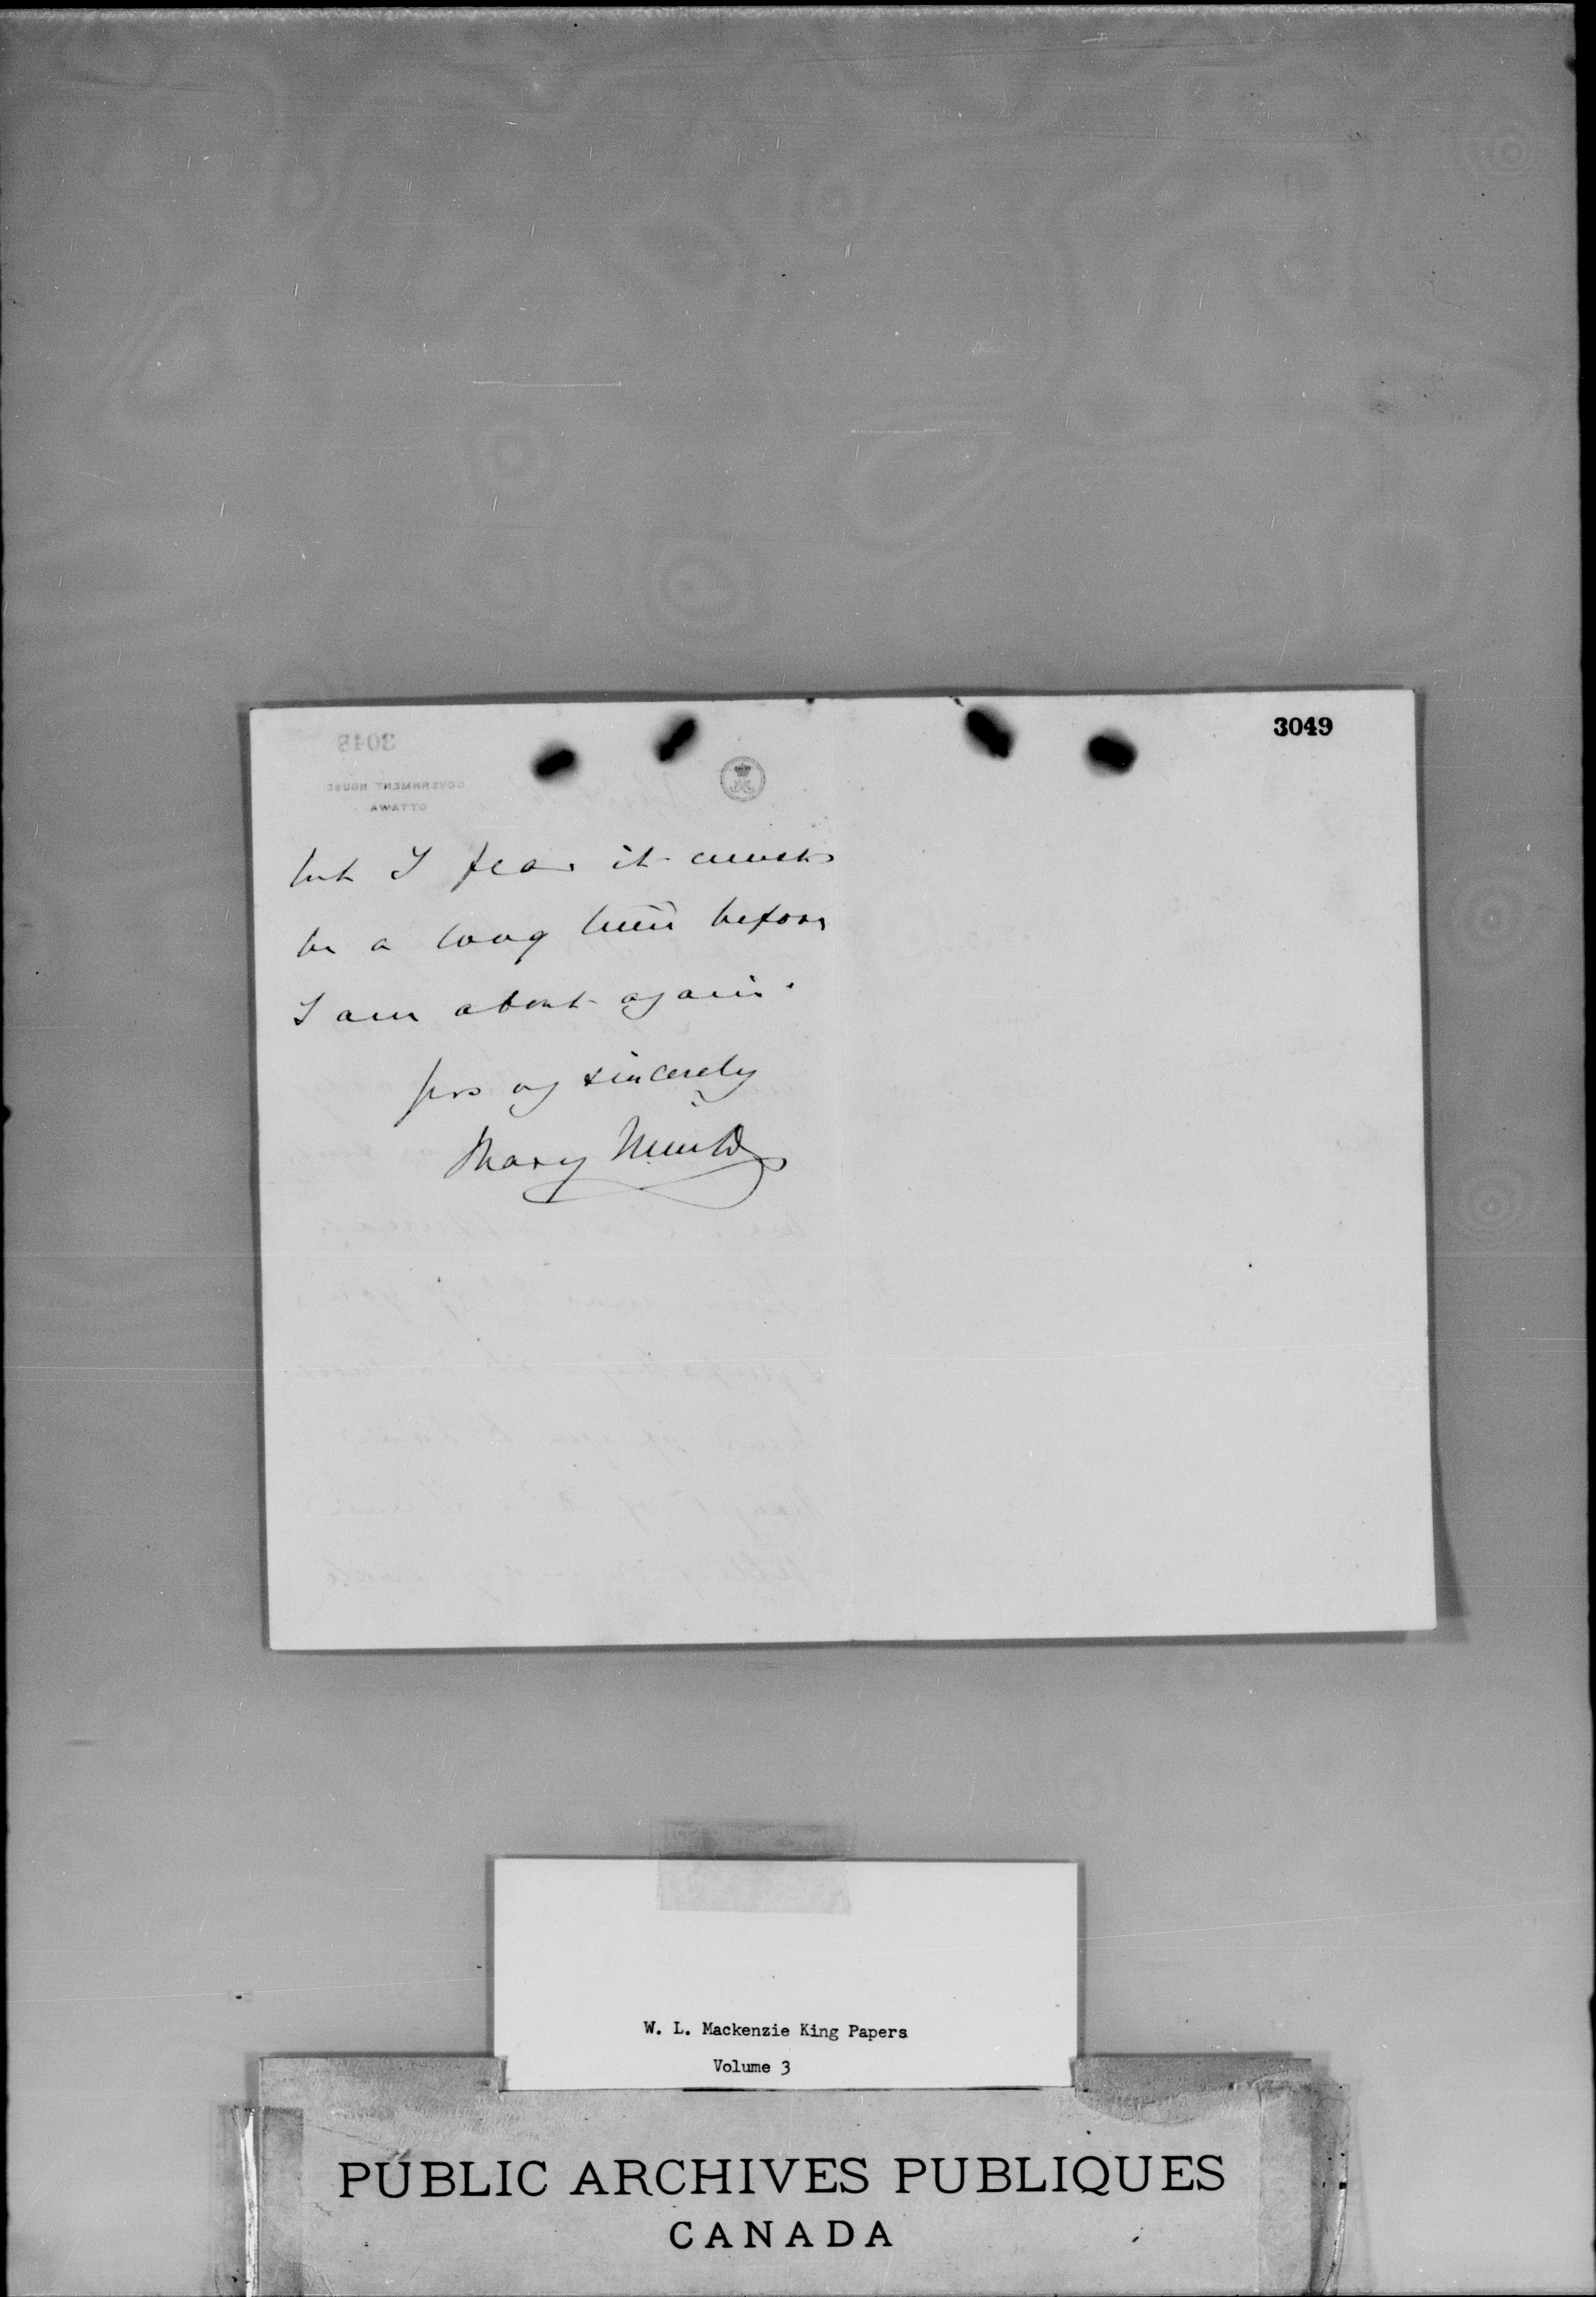 3049
but I fear it must
be a long time before
I am about again.
sincerely
Mary Minto
W. L. Mackenzie King Papers
Volume 3
PUBLIC ARCHIVES PUBLIQUES
CANADA
3048
GOVERNMENT HOUSE
OTTAWA